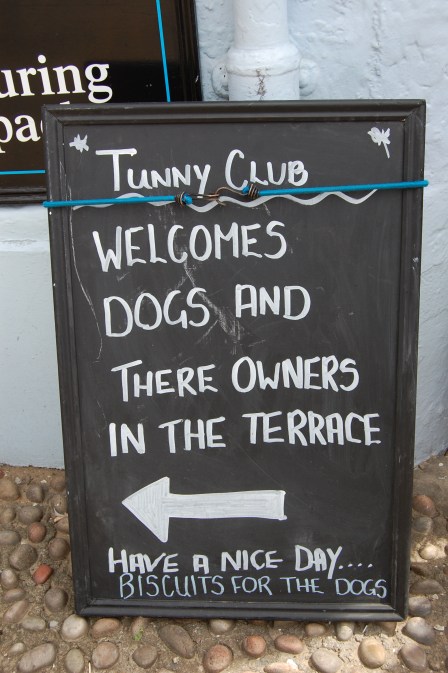 uring
pac
TUNNY CLUB
WELCOMES
DOGS AND
THERE OWNERS
IN THE TERRACE
HAVE A NICE DAY....
BISCUITS FOR THE DOGS